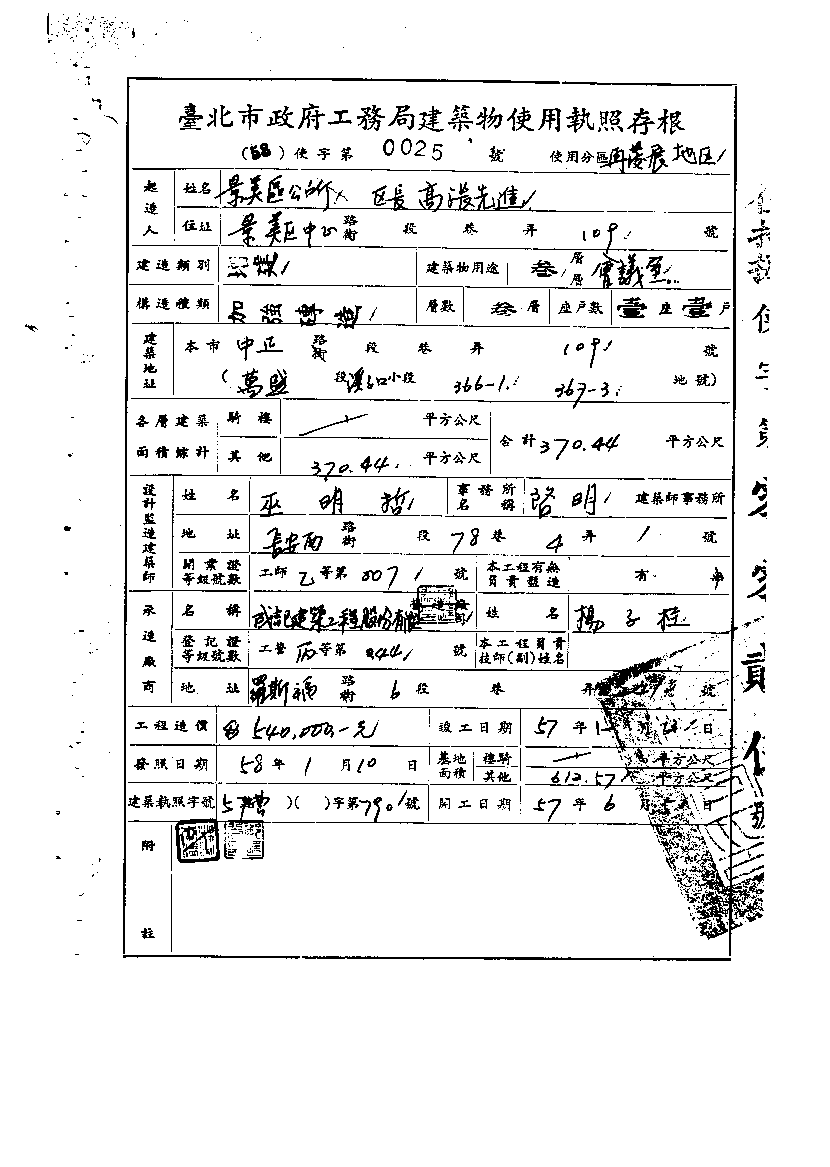 臺北市政府工務局建築物使用執照存根
(58)使字第 0025 號 使用分區 再發展地区
起造人 姓名 景美區公所 区長 高張先進
住址 景美区中正 路街 段 巷 弄 109 號
建造類別 建築物用途 叁層層 會議室
構造種類 加強磚造 層數 叁層 座戶數 壹座壹戶
建築地址 本市 中正 路街 段 巷 弄 109 號
(萬盛 段 溪口小段 366-1. 363-3. 地號)
各層建築面積綜計 騎樓 平方公尺 合計 370.44 平方公尺
其他 370.44. 平方公尺
設計監造建築師 姓名 巫明哲 事務所名稱 啓明 建築師事務所
地址 長安西 路街 段 78 巷 4 弄 1 號
開業證等級號數 工師 乙等第 007 號 本工程有無負責監造 有
承造廠商 名稱 成記建築工程股份有限 姓名 楊子桂
登記證等級號數 工營 丙等第 號 本工程負責技師(副)姓名
地址 羅斯福 路街 6 段 巷 弄 號
工程造價 540,000.-元 竣工日期 57年 月 日
發照日期 58年1月10日 基地面積 樓騎 平方公尺
其他 612.57 平方公尺
建築執照字號 57 )( )字第 790 號 開工日期 57年6月5日
附註
使字第 號